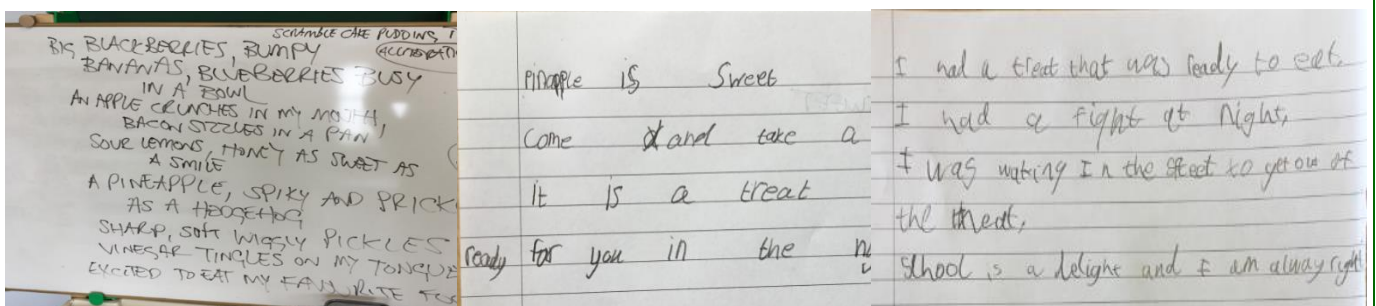 SCRAMBLE CAKE PUDDING
BIG BLACKBERRIES, BUMPY
BANANAS, BLUEBERRIES BUSY
IN A BOWL
AN APPLE CRUNCHES IN MY MOUTH,
BACON SIZZLES IN A PAN,
SOUR LEMONS, HONEY AS SWEET AS
A SMILE
A PINEAPPLE, SPIKY AND PRICK
AS A HEDGEHOG
SHARP, SOFT WIGGLY PICKLES
VINEGAR TINGLES ON MY TONGUE
EXCITED TO EAT MY FAVOURITE
Pinapple is Sweet
come and take a
it is a treat
ready for you in the
I had a treat that was ready to eat.
I had a fight at night,
I was waking In the street to get ou of
the threat,
School is a delight and I am alway right